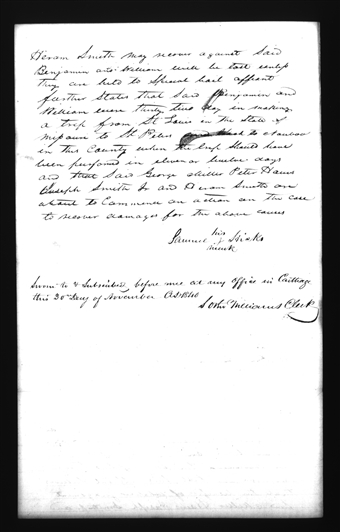 Hiram Smith may recover against said
Benjamin and William will be lost unless
they are held to Special bail affiant
further States that said Benjamin and
William were thirty two days in making
a trip from St Louis in the State of
Missouri to St Peters and back to Nauvoo
in this County when the trip should have
been performed in eleven or twelve days
and that Said George Miller Peter Haws
Joseph Smith Jr and Hiram Smith are
about to Commence an action on the case
to recover damages for the above causes
Samuel his Hicks
mark
Sworn to & Subscribed before me at my office in Carthage
this 30th Day of November AD 1840
Clerk